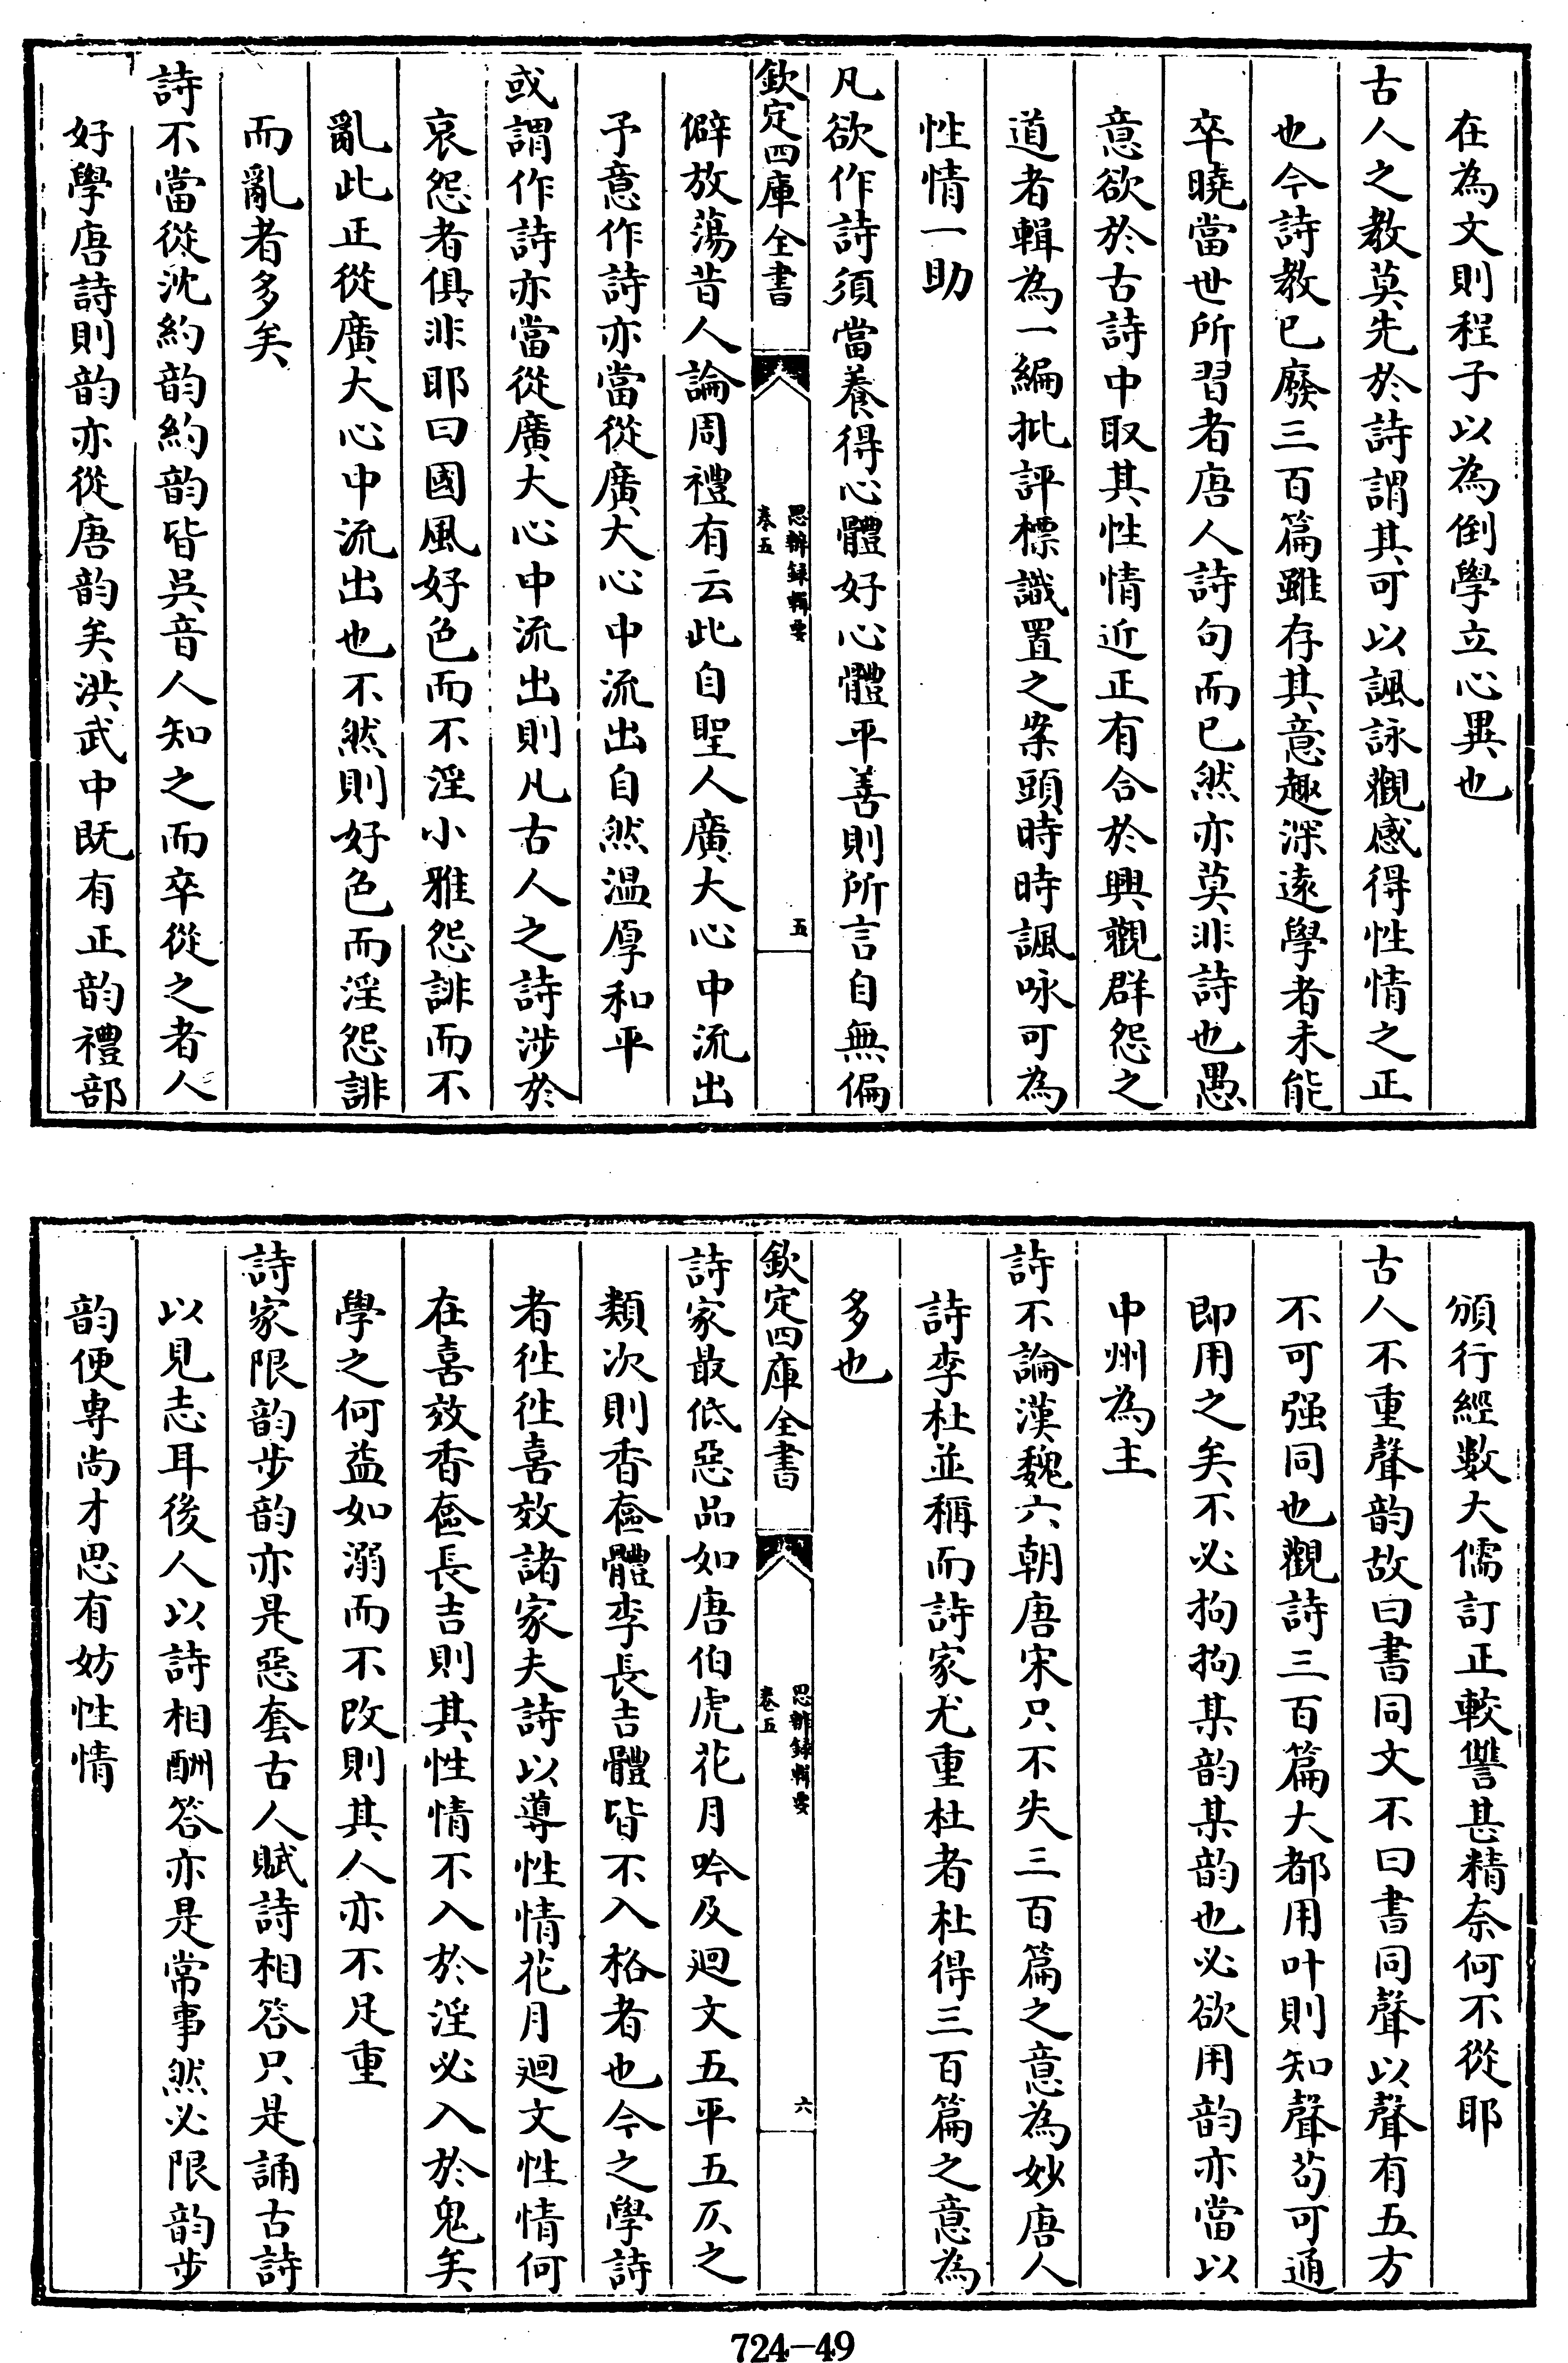 在為文則程子以為倒學立心異也
古人之教莫先於詩謂其可以諷詠觀感得性情之正
也今詩教已廢三百篇雖存其意趣深遠學者未能
卒曉當世所習者唐人詩句而已然亦莫非詩也愚
意欲於古詩中取其性情近正有合於興觀群怨之
道者輯為一編批評標識置之案頭時時諷咏可為
性情一助
凡欲作詩須當養得心體好心體平善則所言自無偏
欽定四庫全書
思辨録輯要
卷五
五
僻放蕩昔人論周禮有云此自聖人廣大心中流出
予意作詩亦當從廣大心中流出自然温厚和平
或謂作詩亦當從廣大心中流出則凡古人之詩涉於
哀怨者俱非耶曰國風好色而不淫小雅怨誹而不
亂此正從廣大心中流出也不然則好色而淫怨誹
而亂者多矣
詩不當從沈約韵約韵皆吳音人知之而卒從之者人
好學唐詩則韵亦從唐韵矣洪武中既有正韵禮部
頒行經數大儒訂正較讐甚精奈何不從耶
古人不重聲韵故曰書同文不曰書同聲以聲有五方
不可强同也觀詩三百篇大都用叶則知聲茍可通
即用之矣不必拘拘某韵某韵也必欲用韵亦當以
中州為主
詩不論漢魏六朝唐宋只不失三百篇之意為妙唐人
詩李杜並稱而詩家尤重杜者杜得三百篇之意為
多也
欽定四庫全書
思辨録輯要
卷五
六
詩家最低惡品如唐伯虎花月吟及廻文五平五仄之
類次則香奩體李長吉體皆不入格者也今之學詩
者徃徃喜效諸家夫詩以導性情花月廻文性情何
在喜效香奩長吉則其性情不入於淫必入於鬼矣
學之何益如溺而不改則其人亦不足重
詩家限韵步韵亦是惡套古人賦詩相答只是誦古詩
以見志耳後人以詩相酬答亦是常事然必限韵步
韵便專尚才思有妨性情
724-49